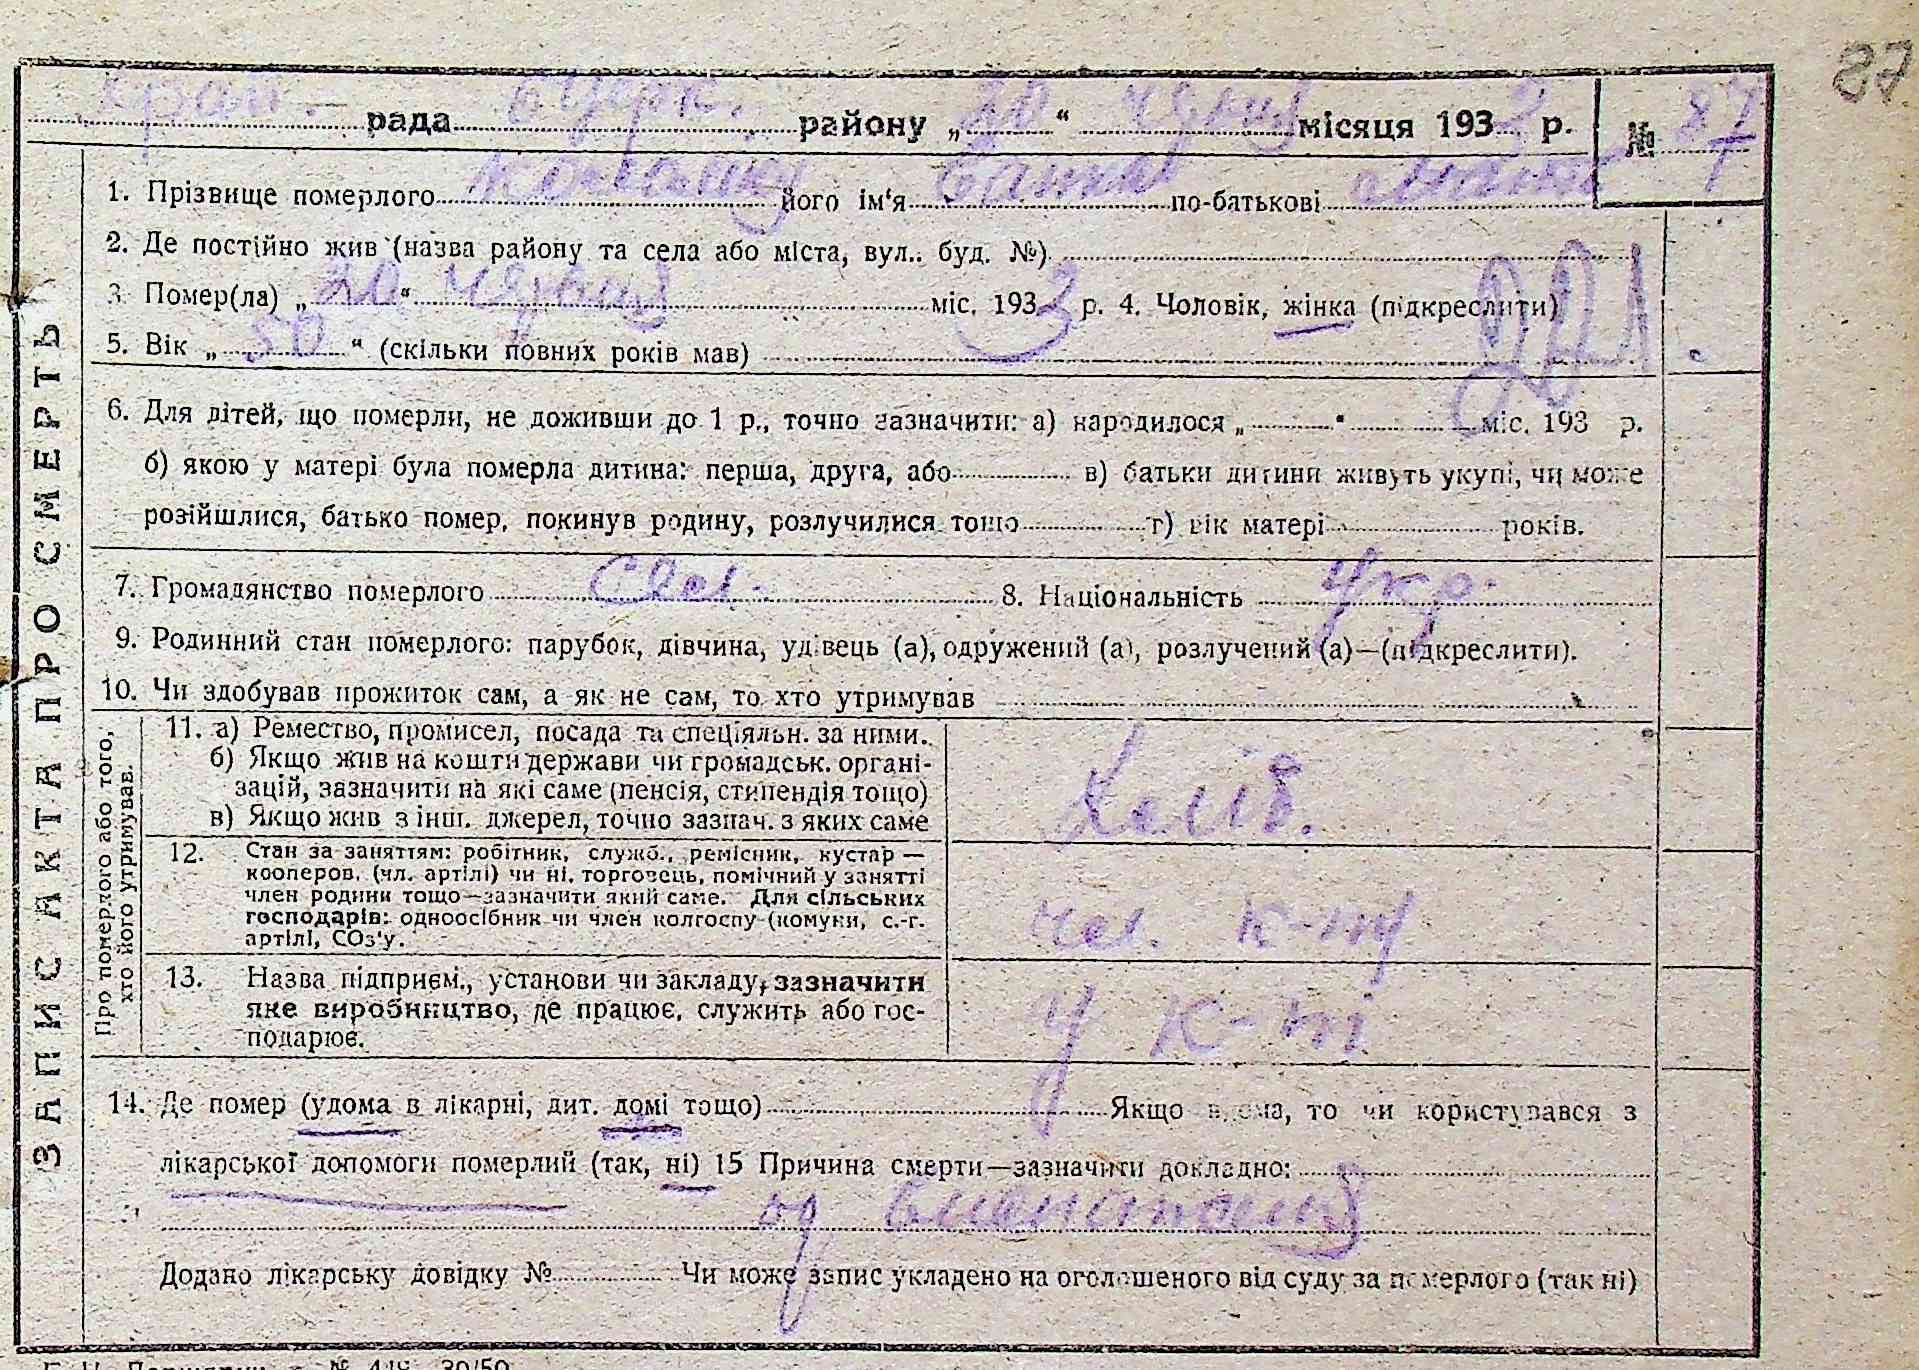 87
рада Б Церк. району „20“ червня місяця 1933 р. № 87
1. Прізвище померлого його ім'я по-батькові
2. Де постійно жив (назва району та села або міста, вул.. буд. №)
3. Помер(ла) „20“ червня міс. 1933 р. 4. Чоловік, жінка (підкреслити)
5. Вік „50“ (скільки повних років мав)
6. Для дітей, що померли, не доживши до 1 р., точно зазначити: а) народилося „ “ міс. 193 р.
б) якою у матері була померла дитина: перша, друга, або в) батьки дитини живуть укупі, чи може
розійшлися, батько помер, покинув родину, розлучилися тощо г) вік матері років.
7. Громадянство померлого 8. Національність Укр.
9. Родинний стан померлого: парубок, дівчина, удівець (а), одружений (а), розлучений (а)—(підкреслити).
10. Чи здобував прожиток сам, а як не сам, то хто утримував
11. а) Ремество, промисел, посада та спеціяльн. за ними.
б) Якщо жив на кошти держави чи громадськ. органі-
зацій, зазначити на які саме (пенсія, стипендія тощо)
в) Якщо жив з інш. джерел, точно зазнач. з яких саме
12. Стан за заняттям: робітник, служб., ремісник, кустар —
кооперов. (чл. артілі) чи ні, торговець, помічний у занятті
член родини тощо—зазначити який саме. Для сільських
господарів: одноосібник чи член колгоспу (комуни, с.-г.
артілі, СОз'у.
чл. к-ту
13. Назва підприєм., установи чи закладу, зазначити
яке виробництво, де працює, служить або гос-
подарює.
у к-ті
14. Де помер (удома в лікарні, дит. домі тощо) Якщо вдома, то чи користувався з
лікарської допомоги померлий (так, ні) 15 Причина смерти—зазначити докладно:
од
Додано лікарську довідку № Чи може запис укладено на оголошеного від суду за померлого (так ні)
ЗАПИС АКТА ПРО СМЕРТЬ
Про померлого або того,
хто його утримував.